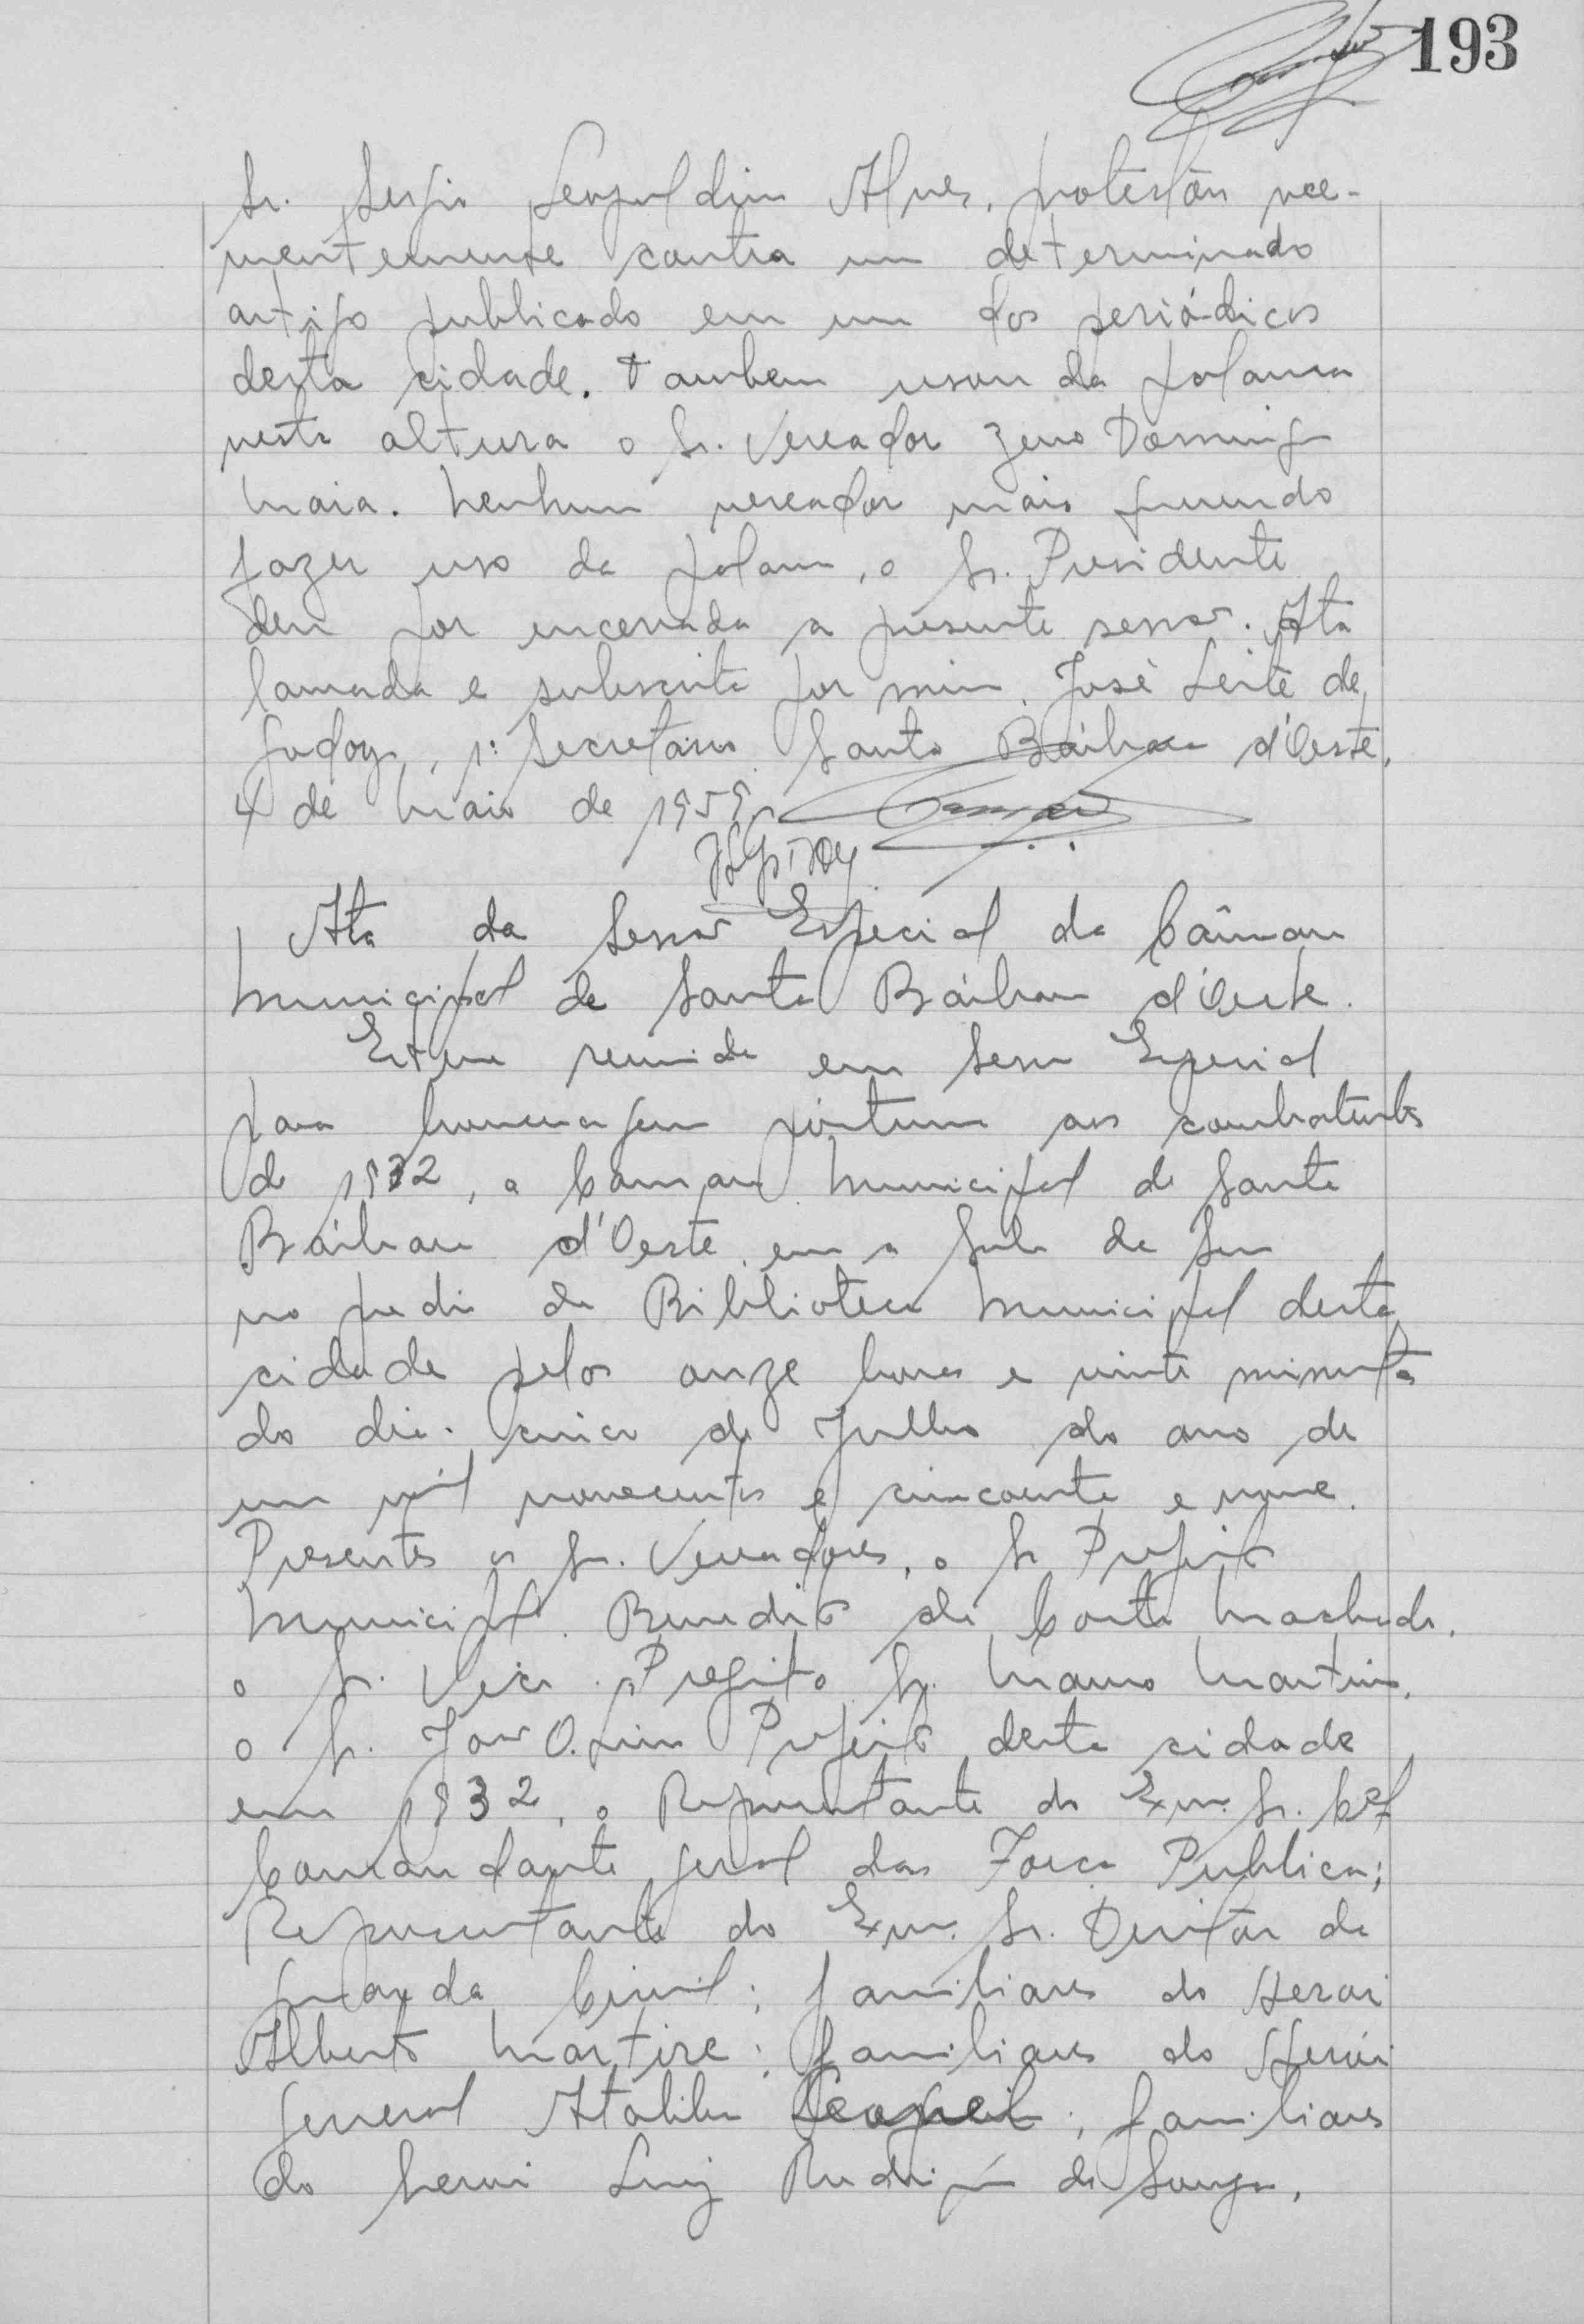 193
Sr. Sergio Leopoldino Alves, protestou vee-
mentemente contra um determinado
artigo publicado em um dos periódicos
desta cidade. Tambem usou da palavra
nesta altura o Sr. Vereador Zeno Domingo
Maia. Nenhum vereador mais querendo
fazer uso da palavra, o Sr. Presidente
deu por encerrada a presente sessão. Ata
lavrada e subscrita por mim. José Leite de
Godoy, 1º Secretário. Santa Bárbara d'Oeste,
4 de Maio de 1959.
Ata da Sessão Especial da Câmara
Municipal de Santa Bárbara d'Oeste.
Esteve reunida em Sessão Especial
para homenagem póstuma aos combatentes
de 1932, a Camara Municipal de Santa
Bárbara d'Oeste, em a Sala de
no predio da Biblioteca Municipal desta
cidade pelas onze horas e vinte minutos
do dia cinco de Julho do ano de
um mil novecentos e cincoenta e nove.
Presentes os Srs. Vereadores, o Sr Prefeito
Municipal. Benedito da Costa Machado,
o Sr. Vice Prefeito Sr. Mauro Martins,
o Sr. João O. Lino Prefeito desta cidade
em 1932, o Representante do Exmo. Sr. Cel
Comandante geral das Força Publica;
Representante do Exmo. Sr. Diretor da
guarda Civil; familiares do Heroi
Alberto Martire; familiares do Herói
general Ataliba Leonel; familiares
do heroi Luiz Rodrigues de Souza,